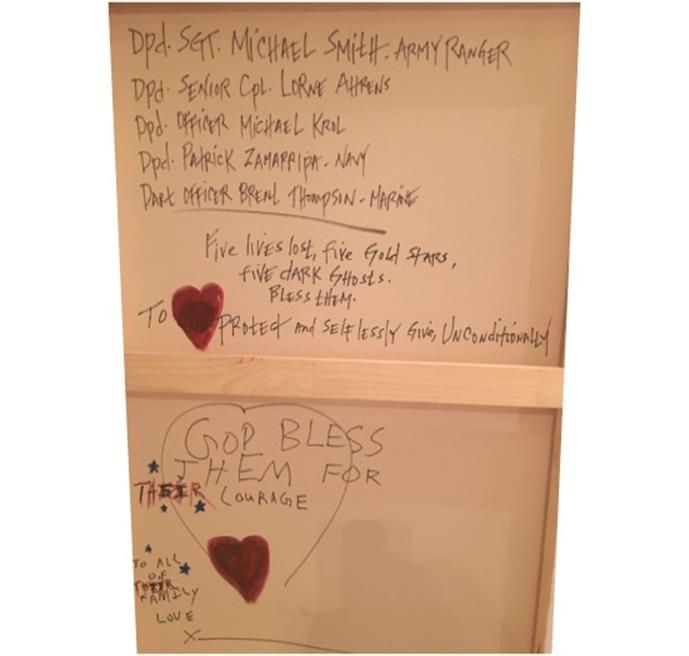 Dpd. SGT. MICHAEL SMITH - ARMY RANGER
Dpd. SENIOR CpL. LORNE AHRENS
Dpd. OFFICER MICHAEL KROL
Dpd. PATRICK ZAMARRIPA - NAVY
DART OFFICER BRENT THOMPSON - MARINE
Five lives lost, five Gold STARS,
five dARK GHosts.
BLESS tHEM.
TO PROTECT and SELFLESSLY Give, UNCONditiONALLY
GOD BLESS
THEM FOR
THEIR COURAGE
TO ALL
OF
THEIR
FAMILY
LOVE
X